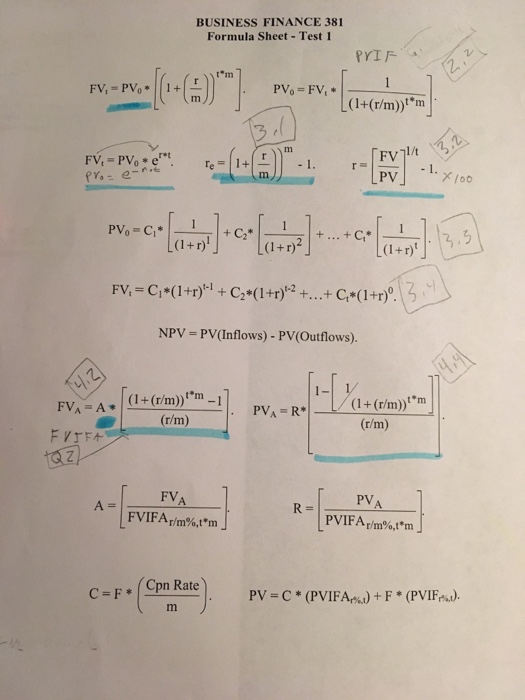 BUSINESS FINANCE 381
Formula Sheet - Test 1
PVIF
2.2
FVₜ = PV₀ * [(1+(r/m))^t*m].
PV₀ = FVₜ * [1/(1+(r/m))^t*m].
3.1
3.2
FVₜ = PV₀ * e^r*t.
rₑ = (1+(r/m))^m - 1.
r = [FV/PV]^1/t - 1. x100
PV₀ = e^-r*t
PV₀ = C₁* [1/(1+r)^1] + C₂* [1/(1+r)^2] + ... + Cₜ* [1/(1+r)^t]. 3.3
FVₜ = C₁*(1+r)^t-1 + C₂*(1+r)^t-2 +...+ Cₜ*(1+r)^0. 3.4
NPV = PV(Inflows) - PV(Outflows).
4.2
4.4
FV_A = A * [(1+(r/m))^t*m – 1/(r/m)].
PV_A = R* [1-[1/(1+(r/m))^t*m]/(r/m)].
FVIFA
Q2
A = [FV_A/FVIFA_r/m%,t*m].
R = [PV_A/PVIFA_r/m%,t*m].
C = F * (Cpn Rate/m).
PV = C * (PVIFA_r%,t) + F * (PVIF_r%,t).